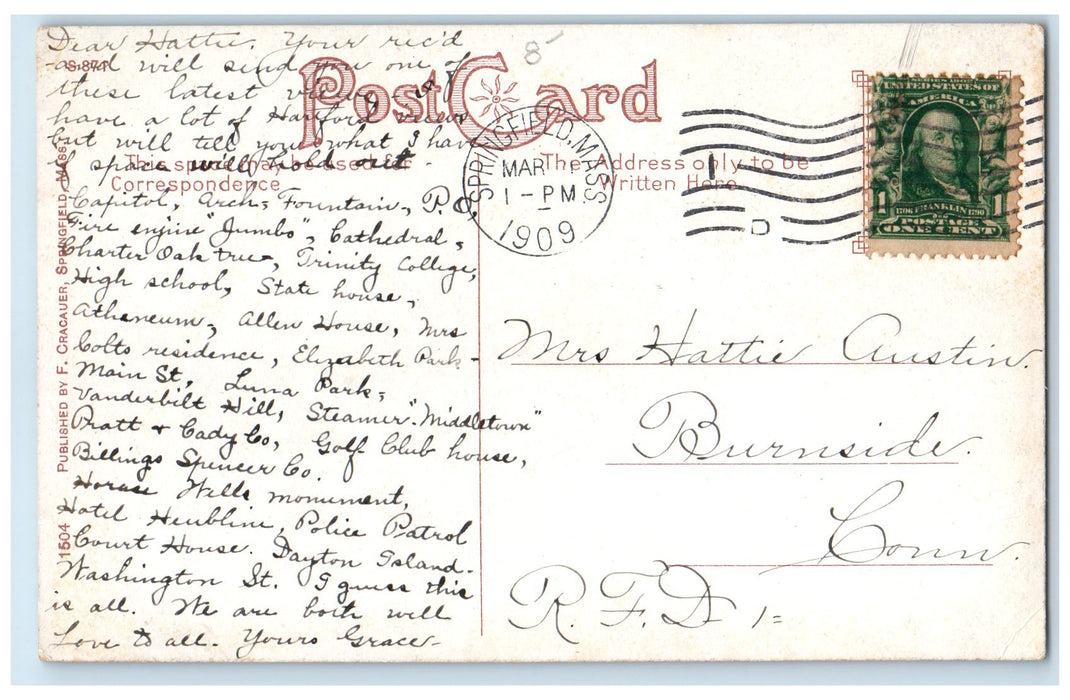 Dear Hattie. Your rec'd
and will send you one of
these latest views
have a lot of Hartford views
but will tell you what I have
if space will hold out -
Capitol, Arch, Fountain, P.O.
Fire engine "Jumbo", Cathedral,
Charter Oak tree, Trinity College,
High school, State house,
Atheneum, Allen House, Mrs
Colts residence, Elizabeth Park -
Main St, Luna Park,
Vanderbilt Hill, Steamer "Middletown"
Pratt + Cady Co, Golf Club house,
Billings Spencer Co.
Horace Wells monument,
Hotel Heubline, Police Patrol
Court House. Dayton Island.
Washington St. I guess this
is all. We are both well
Love to all. Yours Grace -
S-874
Post Card
This space may be used for
Correspondence
The Address only to be
Written Here
1504 PUBLISHED BY F. CRACAUER, SPRINGFIELD, MASS.
8
SPRINGFIELD, MASS
MAR
1 - PM
1909
1
D
UNITED STATES OF
AMERICA
1706 FRANKLIN 1790
POSTAGE
1 ONE CENT 1
Mrs Hattie Austin.
Burnside.
Conn.
R. F. D 1 =